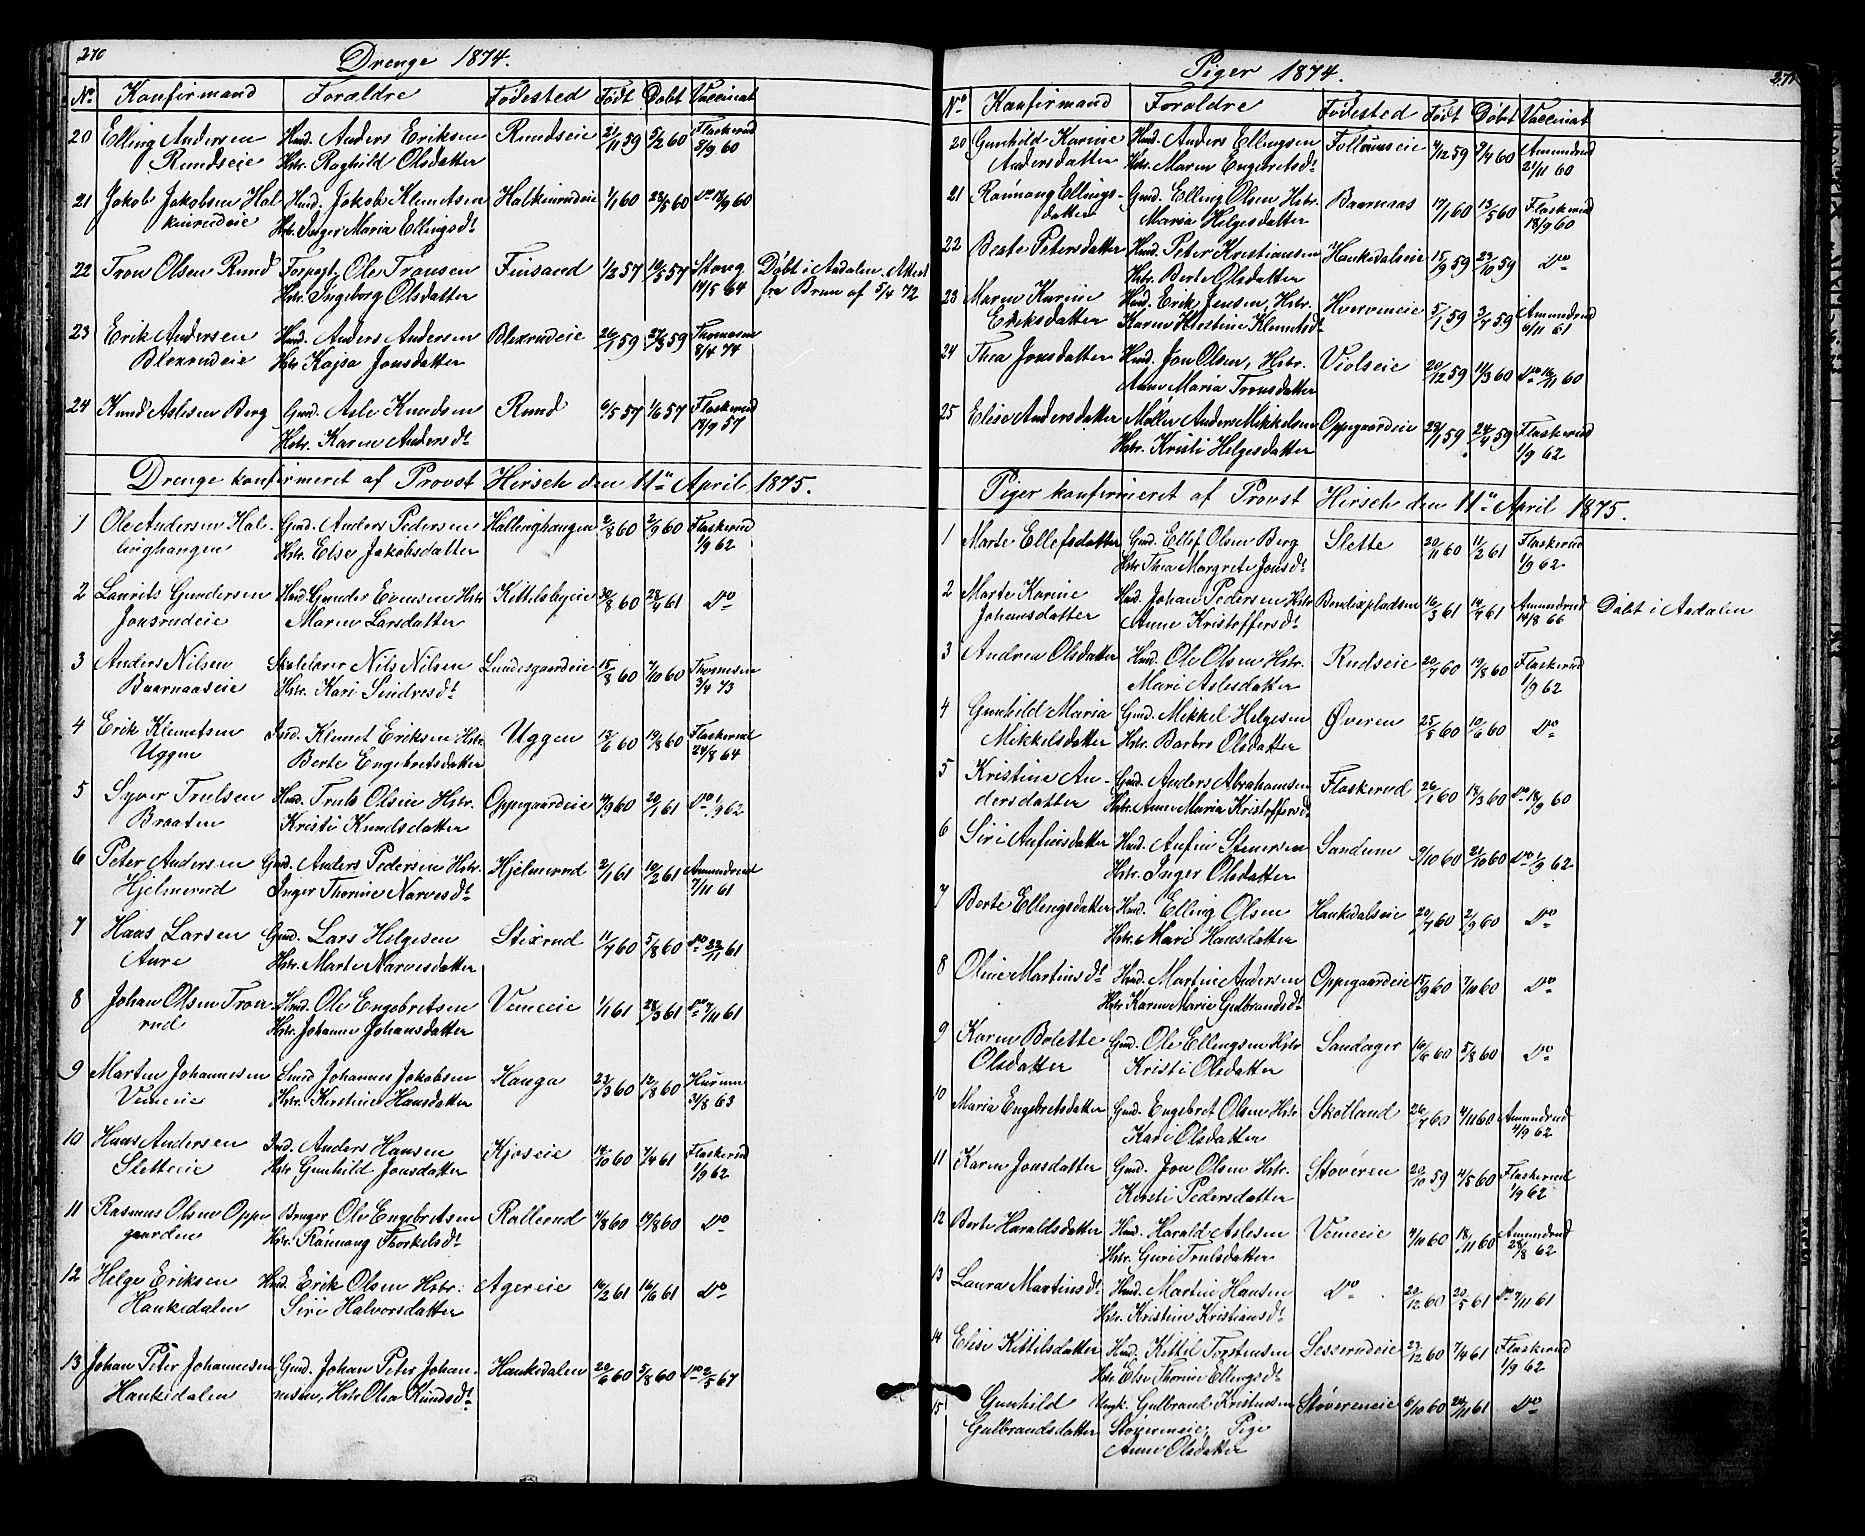 270
Drenge 1874.
No. Konfirmand Forældre Fødested Født Døbt Vaccinat
20 Elling Andersen Hmd. Anders Eriksen Rundseie 21/11 59 5/2 60 Flaskerud
Rundseie Hstr. Raghild Olsdatter 8/9 60
21 Jakob Jakobsen Hal- Hmd. Jakob Klemetsen Halkinrudeie 1/1 60 do 18/9 60
kinrudeie Hstr. Inger Maria Ellingsdt
22 Tron Olsen Rund Ole Tronsen Finsand 1/3 57 10/5 57 Stong Døbt i Aadalen. Attest
Hstr. Ingeborg Olsdatter 14/5 64 fra Brun af 5/4 72
23 Erik Andersen Hmd. Anders Andersen Bloxrudeie 26/1 59 27/3 59 Thomesen
Bloxrudeie Hstr Kajsa Jonsdatter 8/4 74
24 Knud Aslesen Berg Gmd. Asle Knudsen Rund 6/5 57 1/6 57 Flaskerud
Hstr. Karen Andersdt 18/9 57
Drenge konfirmeret af Provst Hirsch den 11te April 1875.
1 Ole Andersen Hal- Gmd. Anders Pedersen Hallinghaugen 2/8 60 2/9 60 Flaskerud
linghaugen Hstr. Else Jakobsdatter 1/9 62
2 Laurits Gundersen Hmd Gunder Evensen Hstr Kittelsbyeie 30/8 60 28/4 61 do
Jonsrudeie Maren Larsdatter
3 Anders Nilsen Skolelærer Nils Nilsen Lundesgaardeie 15/8 60 7/10 60 Thomesen
Baarnaaseie Hstr. Kari Sindresdt 3/4 73
4 Erik Klemetsen Ind. Klemet Eriksen Hstr. Uggen 12/6 60 19/8 60 Flaskerud
Uggen Berte Engebretsdatter 24/8 64
5 Syver Trulsen Hmd. Truls Olsen Hstr. Oppegaardeie 4/9 60 20/1 61 do 1/9 62
Braaten Kristi Knudsdatter
6 Peter Andersen Gmd. Anders Pedersen Hstr. Hjelmerud 2/1 61 10/2 61 Amundrud
Hjelmerud Inger Thorine Narvesdt 7/11 61
7 Hans Larsen Gmd. Lars Helgesen Stixrud 11/7 60 5/8 60 do 22/11 61
Aure Hstr. Marte Narvesdatter
8 Johan Olsen Tron- Hmd. Ole Engebretsen Vemeeie 1/1 61 24/3 61 do 7/11 61
rud Hstr. Johanne Johansdatter
9 Martin Johannesen Smed Johannes Jakobsen Hauga 22/3 60 12/8 60 Hurum
Vemeeie Hstr. Kirstine Hansdatter 31/8 63
10 Hans Andersen Ind. Anders Hansen Kjoseie 14/10 60 7/4 61 Flaskerud
Sletteeie Hstr Gunhild Jonsdatter 1/9 62
11 Rasmus Olsen Oppe- Bruger Ole Engebretsen Rallerud 4/8 60 19/8 60 do
gaarden Hstr. Rønnaug Thorkelsdt
12 Helge Eriksen Hmd. Erik Olsen Hstr: Agereie 16/2 61 16/6 61 do
Haukedalen Siri Halvorsdatter
13 Johan Peter Johannesen Gmd. Johan Peter Johan- Haukedalen 20/6 60 5/8 60 do 2/5 67
Haukedalen nesen, Hstr Olea Knudsdt
271
Piger 1874.
No. Konfirmand Forældre Fødested Født Døbt Vaccinat
20 Gunhild Karine Hmd. Anders Ellingsen Follumseie 4/12 59 9/4 60 Amundrud
Andersdatter Hstr. Maren Engebretsdt 21/11 60
21 Rønnaug Ellings- Gmd. Elling Olsen Hstr. Baarnaas 17/1 60 13/5 60 Flaskerud
datter Maria Helgesdatter 18/9 60
22 Beate Petersdatter Hmd. Peter Kristiansen Haukedalseie 15/9 59 23/10 59 do
Hstr. Berte Olsdatter
23 Maren Karine Hmd. Erik Jensen, Hstr. Hverveneie 5/1 59 3/7 59 Amundrud
Eriksdatter Karen Kirstine Klemetsdt 6/11 61
24 Thea Jonsdatter Hmd. Jon Olsen, Hstr. Violseie 20/12 59 11/3 60 do 16/11 60
Anne Maria Tronsdatter
25 Elise Andersdatter Møller Anders Mikkelsen Oppegaardeie 23/1 59 24/4 59 Flaskerud
Hstr. Kristi Helgesdatter 1/9 62
Piger konfirmeret af Provst Hirsch den 11te April 1875.
1 Marte Ellefsdatter Gmd. Ellef Olsen Berg Slette 20/11 60 11/2 61 Flaskerud
Hstr Thea Margrete Jonsdt 1/9 62
2 Marte Karine Hmd. Johan Pedersen Hstr Bendixpladsen 16/3 61 14/4 61 Amundrud Døbt i Aadalen
Johansdatter Anne Kristoffersdt 14/8 66
3 Andrea Olsdatter Hmd. Ole Olsen Hstr. Rudseie 20/7 60 19/8 60 Flaskerud
Mari Aslesdatter 1/9 62
4 Gunhild Maria Gmd. Mikkel Helgesen Øveren 25/5 60 10/6 60 do
Mikkelsdatter Hstr. Barbro Olsdatter
5 Kristine An- Gmd. Anders Abrahamsen Flaskerud 26/1 60 18/3 60 do 18/9 60
dersdatter Hstr. Anne Maria Kristoffersdt
6 Siri Anfinsdatter Hmd. Anfin Stenersen Sandum 9/10 60 21/10 60 do 1/9 62
Hstr. Inger Olsdatter
7 Berte Ellingsdatter Hmd. Elling Olsen Haukedalseie 20/7 60 2/9 60 do
Hstr. Mari Hansdatter
8 Oline Martinsdt Hmd. Martin Andersen Oppegaardeie 15/9 60 7/10 60 do
Hstr Karen Marie Gulbrandsdt
9 Karen Bolette Gmd. Ole Ellingsen Hstr Sandager 16/6 60 5/8 60 do
Olsdatter Kristi Olsdatter
10 Maria Engebretsdatter Gmd. Engebret Olsen Hstr Skotland 26/7 60 4/11 60 Amundrud
Kari Olsdatter 4/9 62
11 Karen Jonsdatter Gmd. Jon Olsen Hstr. Støveren 20/10 59 4/5 60 Flaskerud
Kirsti Pedersdatter 1/9 62
12 Berte Haraldsdatter Hmd. Harald Aslesen Vemeeie 4/10 60 18/11 60 Amundrud
Hstr. Guri Trulsdatter 28/8 62
13 Laura Martinsdt Hmd. Martin Hansen do 20/12 60 20/5 61 do 7/11 61
Hstr. Kristine Kristiansdt
14 Elise Kittilsdatter Hmd. Kittil Torstensen Sesserudeie 23/12 60 7/4 61 Flaskerud
Hstr. Else Thorine Ellingsdt 1/9 62
15 Gunhild Ungk. Gulbrand Kristiansen Støvereneie 6/10 60 24/11 61 do
Gulbrandsdatter Støvereneie, Pige
Anne Olsdatter